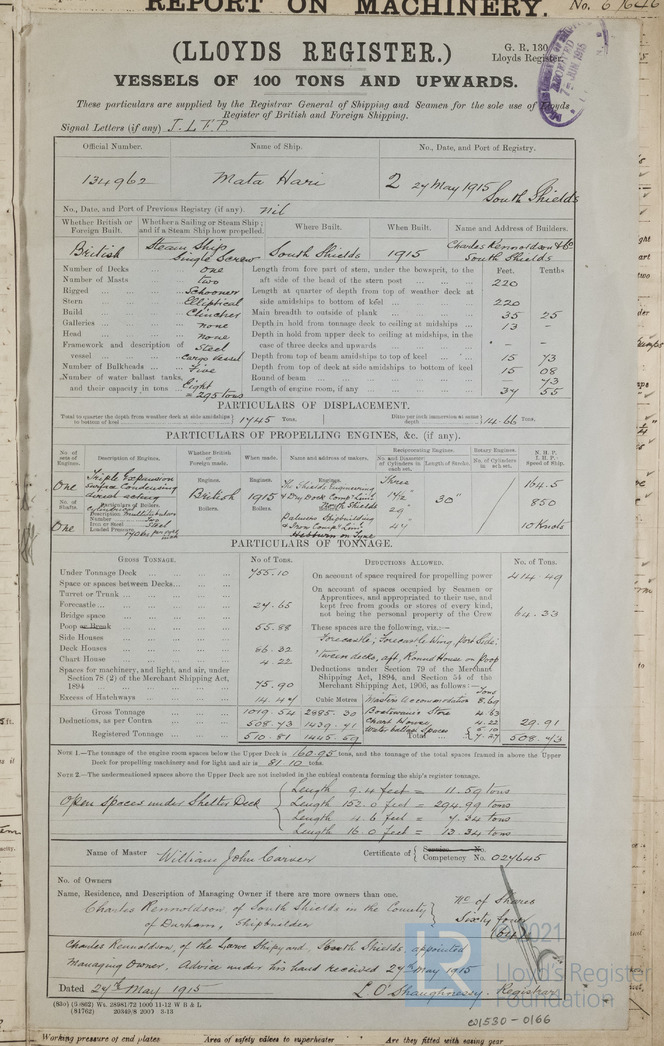 REPORT ON MACHINERY. No. 6
(LLOYDS REGISTER.)
G. R. 130
Lloyds Register
VESSELS OF 100 TONS AND UPWARDS.
These particulars are supplied by the Registrar General of Shipping and Seamen for the sole use of Lloyds
Register of British and Foreign Shipping.
Signal Letters (if any) J.L.F.P.
Official Number. Name of Ship. No., Date, and Port of Registry.
134962 Mata Hari 2 27 May 1915 South Shields
No., Date, and Port of Previous Registry (if any). nil
Whether British or Foreign Built. Whether a Sailing or Steam Ship; and if a Steam Ship how propelled. Where Built. When Built. Name and Address of Builders.
British Steam Ship Single Screw South Shields 1915 Charles Rennoldson & Co South Shields
Feet. Tenths
Number of Decks ... one
Number of Masts ... two
Rigged ... Schooner
Stern ... Elliptical
Build ... Clincher
Galleries ... none
Head ... none
Framework and description of vessel ... Steel cargo vessel
Number of Bulkheads ... Five
Number of water ballast tanks, and their capacity in tons ... Eight = 295 tons
Length from fore part of stem, under the bowsprit, to the aft side of the head of the stern post ... 220
Length at quarter of depth from top of weather deck at side amidships to bottom of keel ... 220
Main breadth to outside of plank ... 35 25
Depth in hold from tonnage deck to ceiling at midships ... 13 -
Depth in hold from upper deck to ceiling at midships, in the case of three decks and upwards - -
Depth from top of beam amidships to top of keel ... 15 73
Depth from top of deck at side amidships to bottom of keel 15 08
Round of beam ... - 73
Length of engine room, if any ... 37 55
PARTICULARS OF DISPLACEMENT.
Total to quarter the depth from weather deck at side amidships to bottom of keel 1745 Tons. Ditto per inch immersion at same depth 14.66 Tons.
PARTICULARS OF PROPELLING ENGINES, &c. (if any).
No. of sets of Engines. Description of Engines. Whether British or Foreign made. When made. Name and address of makers. Reciprocating Engines. No. and Diameter of Cylinders in each set. Length of Stroke. Rotary Engines. No. of Cylinders in each set. N.H.P. I.H.P. Speed of Ship.
One Triple Expansion Surface Condensing direct acting
Engines. Engines. Engines.
British 1915 The Shields Engineering & Dry Dock Comp. Lim. North Shields
Three 17½" 29" 47" 30" 164.5 850 10 Knots
No. of Shafts. Particulars of Boilers.
One Description Number Two
Iron or Steel Steel
Loaded Pressure
Boilers. Boilers.
Palmers Shipbuilding & Iron Comp. Lim. Hebburn on Tyne
PARTICULARS OF TONNAGE.
GROSS TONNAGE. No. of Tons. DEDUCTIONS ALLOWED. No. of Tons.
Under Tonnage Deck ... 755.10
Space or spaces between Decks...
Turret or Trunk ...
Forecastle ... 27.65
Bridge space ...
Poop or Break ... 55.88
Side Houses ...
Deck Houses ... 86.32
Chart House ... 4.22
Spaces for machinery, and light, and air, under Section 78 (2) of the Merchant Shipping Act, 1894 ... 75.90
Excess of Hatchways ... 14.47
Cubic Metres
Gross Tonnage ... 1019.54 2885.30
Deductions, as per Contra ... 508.73 1439.71
Registered Tonnage ... 510.81 1445.59
On account of space required for propelling power 414.49
On account of spaces occupied by Seamen or Apprentices, and appropriated to their use, and kept free from goods or stores of every kind, not being the personal property of the Crew 64.33
These spaces are the following, viz.:—
Forecastle; Forecastle Wing, Port Side;
'tween decks, aft, Round House on Poop
Deductions under Section 79 of the Merchant Shipping Act, 1894, and Section 54 of the Merchant Shipping Act, 1906, as follows:—
Tons
Master's Accommodation 8.69
Boatswain's Store 4.63
Chart House 4.22
Water ballast Spaces 5.10 7.27 29.91
Total ... 508.73
NOTE 1.—The tonnage of the engine room spaces below the Upper Deck is 160.95 tons, and the tonnage of the total spaces framed in above the Upper
Deck for propelling machinery and for light and air is 81.10 tons.
NOTE 2.—The undermentioned spaces above the Upper Deck are not included in the cubical contents forming the ship's register tonnage.
Open spaces under Shelter Deck
Length 9.4 feet = 11.59 tons
Length 152.0 feet = 294.99 tons
Length 4.6 feet = 7.34 tons
Length 16.0 feet = 13.34 tons
Name of Master William John Carver Certificate of Service No. Competency No. 027645
No. of Owners
Name, Residence, and Description of Managing Owner if there are more owners than one.
Charles Rennoldson, of South Shields in the County
of Durham, Shipbuilder
No of Shares
Sixty four
Charles Rennoldson, of the Lawe Shipyard, South Shields, appointed
Managing Owner. Advice under his hand received 27th May 1915
Dated 27th May 1915 L O'Shaughnessy. Registrar
(83o) (5/862) Wt. 28981/72 1000 11-12 W B & L
(81762) 20349/8 2000 3-13
© 2021
Lloyd's Register
Foundation
W1530-0166
Working pressure of end plates Area of safety valves to superheater Are they fitted with easing gear